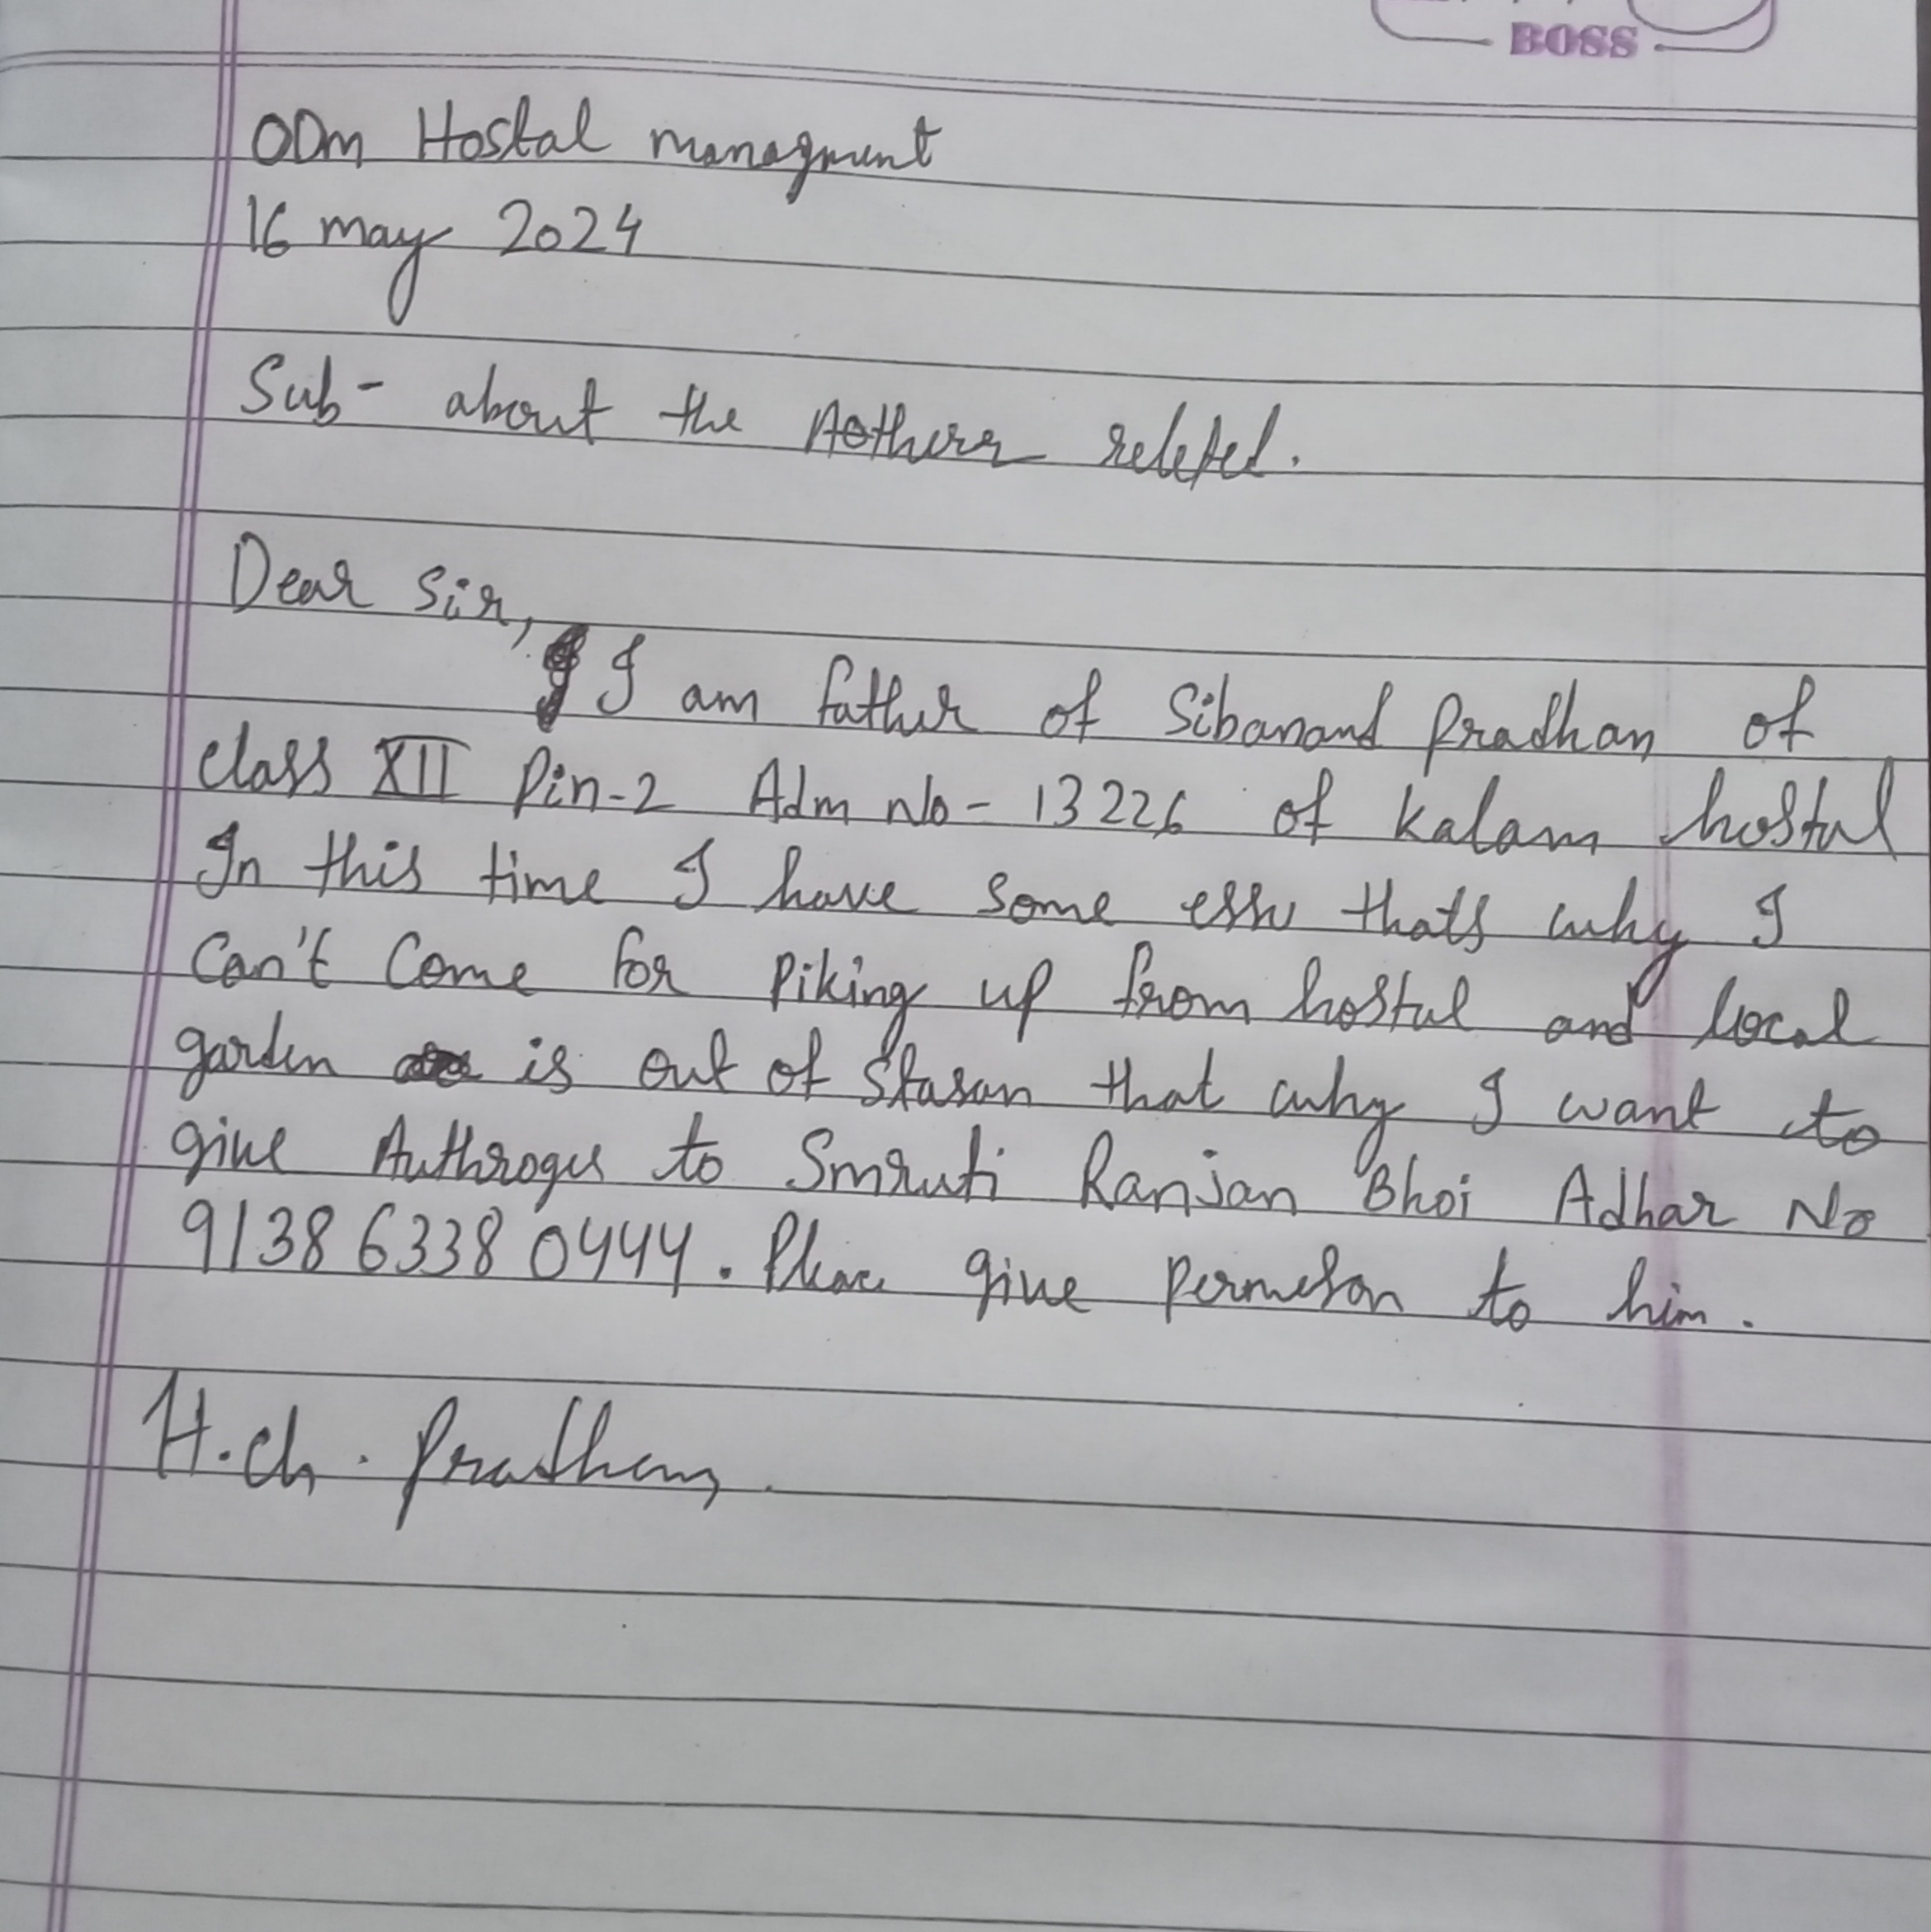 BOSS
ODm Hostal managment
16 may 2024
Sub- about the Aotherr reletel.
Dear Sir,
I am father of Sibanand Pradhan of
class XII Pin-2 Adm No - 13226 of kalam hostul
In this time I have some essu thats why I
Can't Come for Piking up from hostul and local
garden is out of Stasan that why I want to
give Authroges to Smruti Ranjan Bhoi Adhar No
9138 6338 0444. Please give Permeson to him.
H.ch. Pradhan